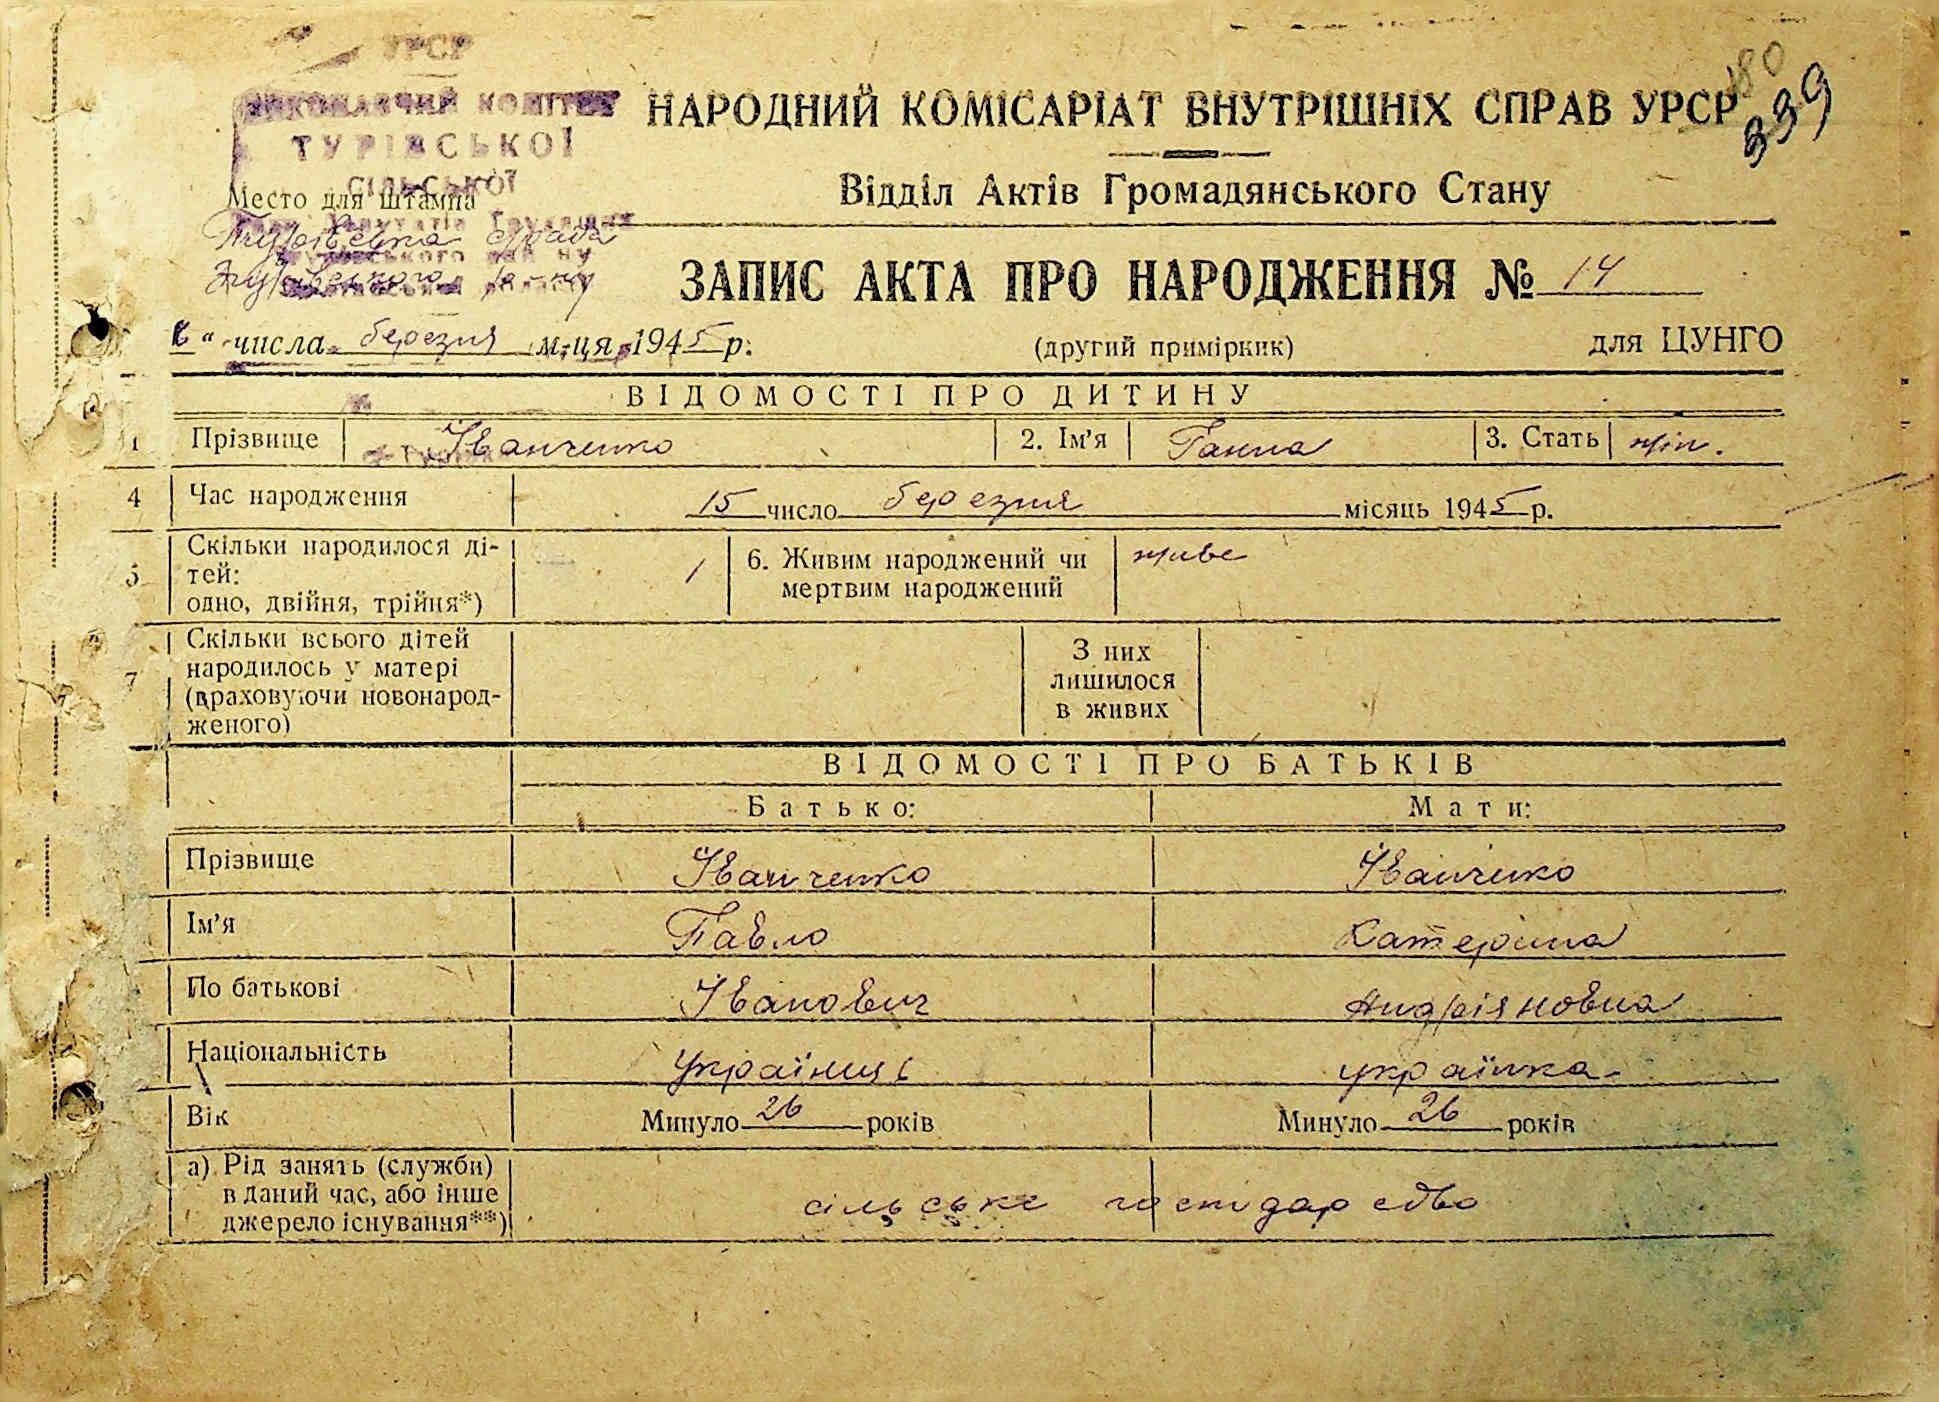 УРСР
180
339
ВИКОНАВЧИЙ КОМІТЕТ
НАРОДНИЙ КОМІСАРІАТ ВНУТРІШНІХ СПРАВ УРСР
ТУРІВСЬКОЇ
СІЛЬСЬКОЇ
Відділ Актів Громадянського Стану
Место для штампа
Депутатів Трудящих
ЗАПИС АКТА ПРО НАРОДЖЕННЯ № 14
числа березня м-ця 1945 р.
(другий примірник)
для ЦУНГО
ВІДОМОСТІ ПРО ДИТИНУ
1 Прізвище Іванченко 2. Ім'я Ганна 3. Стать жін.
4 Час народження 15 число березня місяць 1945 р.
5 Скільки народилося ді-
тей:
одно, двійня, трійня*) 1
6. Живим народжений чи
мертвим народжений
живе
7 Скільки всього дітей
народилось у матері
(враховуючи новонарод-
женого)
З них
лишилося
в живих
ВІДОМОСТІ ПРО БАТЬКІВ
Батько: Мати:
Прізвище Іванченко Іванченко
Ім'я Павло Катерина
По батькові Іванович Андріяновна
Національність Українець українка
Вік Минуло 26 років Минуло 26 років
а) Рід занять (служби)
в даний час, або інше
джерело існування**)
сільське господарство